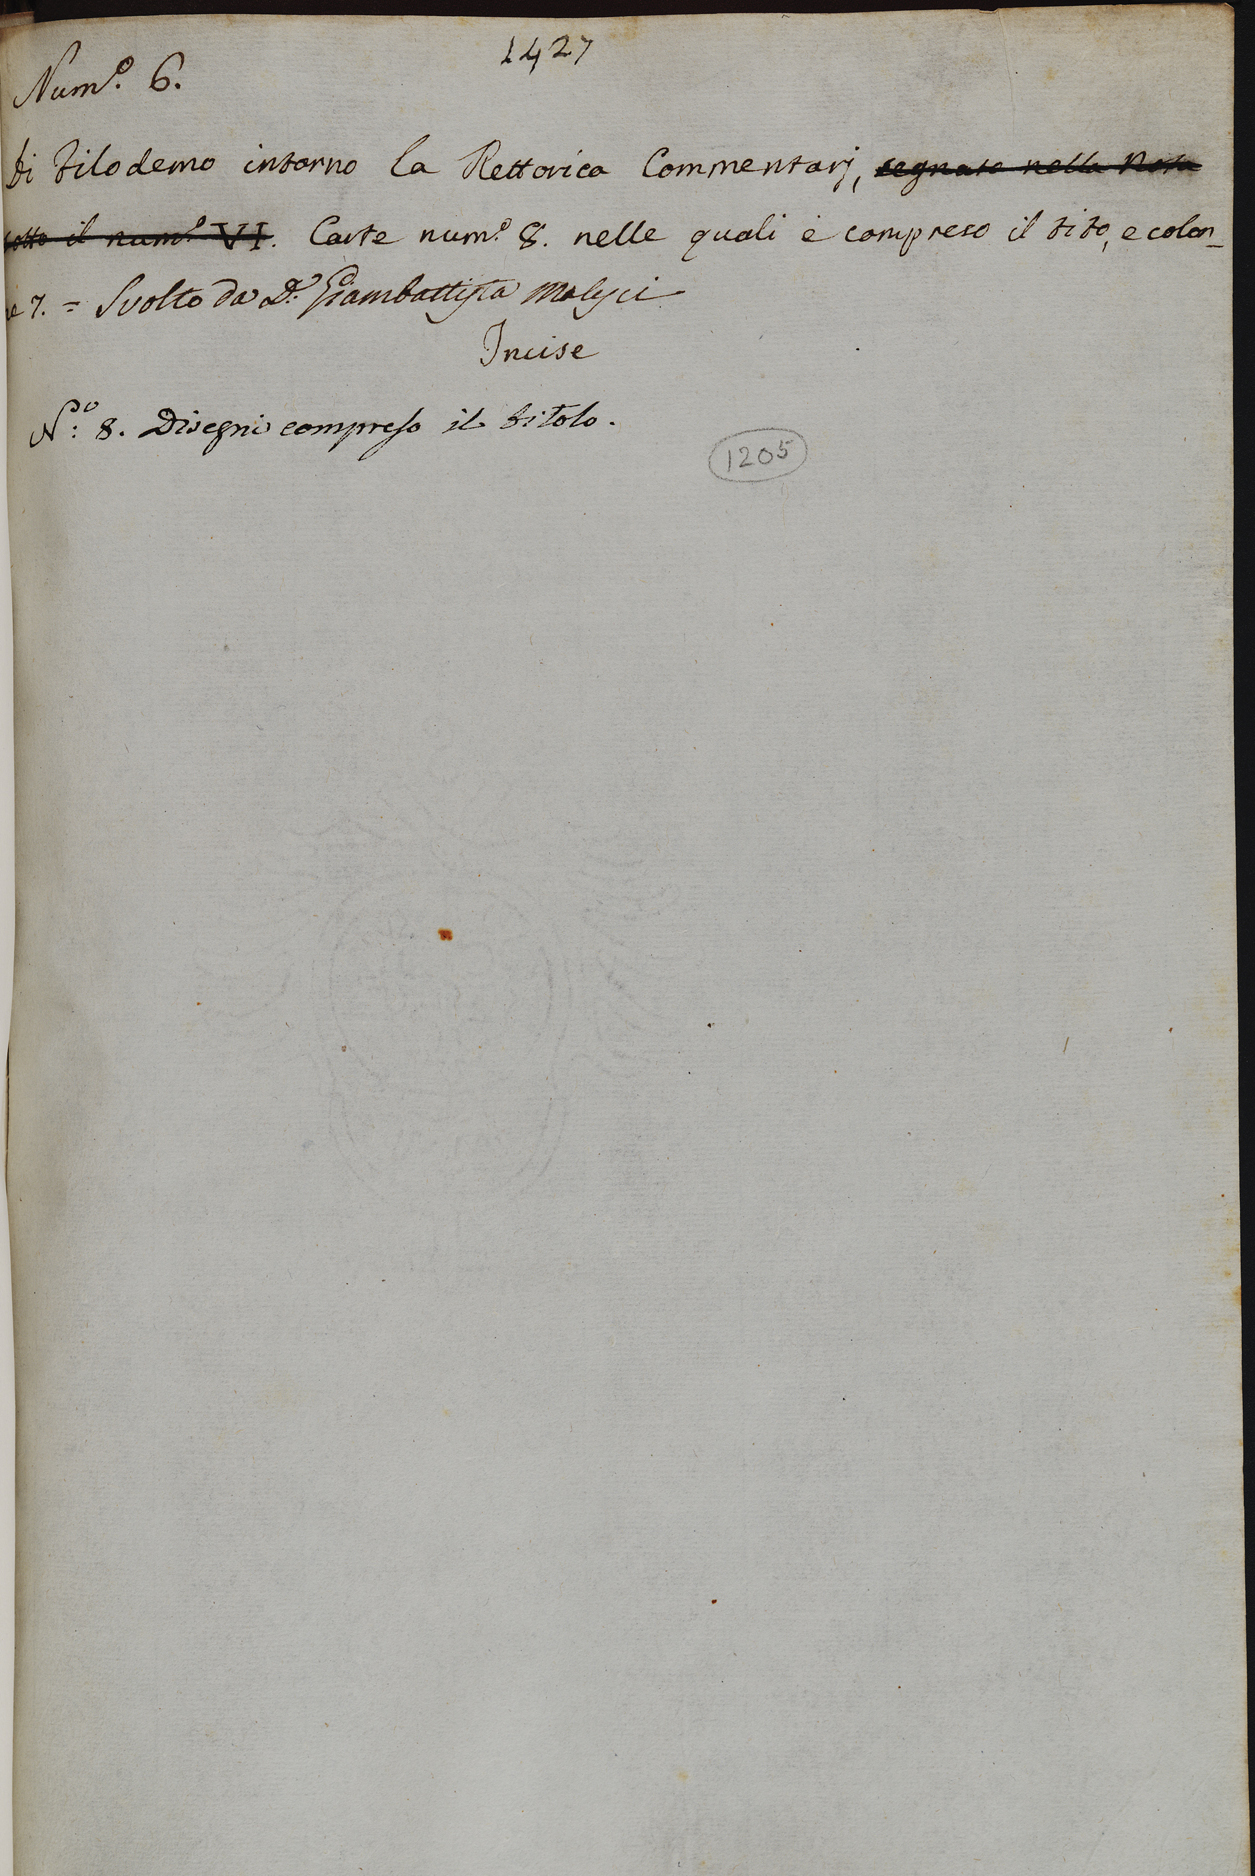 1427
Num.º 6.
Di Filodemo intorno la Rettorica Commentarj, segnato nella Nota
sotto il num.º VI. Carte num.º 8. nelle quali è compreso il tito, e colon_
ne 7. = Svolto da D. Giambattista Malesci
Incise
N.º 8. Disegni compreso il titolo.
1205